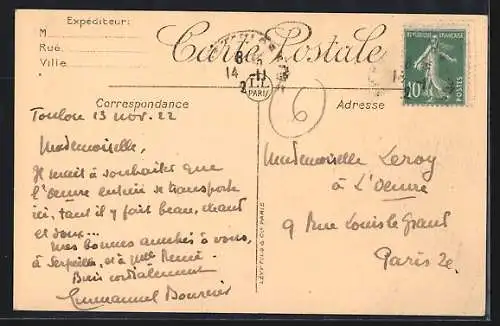 Expéditeur:
M
Rue
Ville
Carte Postale
RÉPUBLIQUE FRANÇAISE
10
POSTES
8
14 -11
2
L.L.
PARIS
6
Correspondance
Adresse
Toulon 13 nov. 22
Mademoiselle,
Il serait à souhaiter que
l'Oeuvre entière se transporte
ici, tant il y fait beau, chaud
et doux...
Mes bonnes amitiés à vous,
à et à Melle Renée.
Bien cordialement
Emmanuel
LEVY FILS & Cie PARIS
Mademoiselle Leroy
à L'Oeuvre
9 Rue Louis le Grand
Paris 2e.